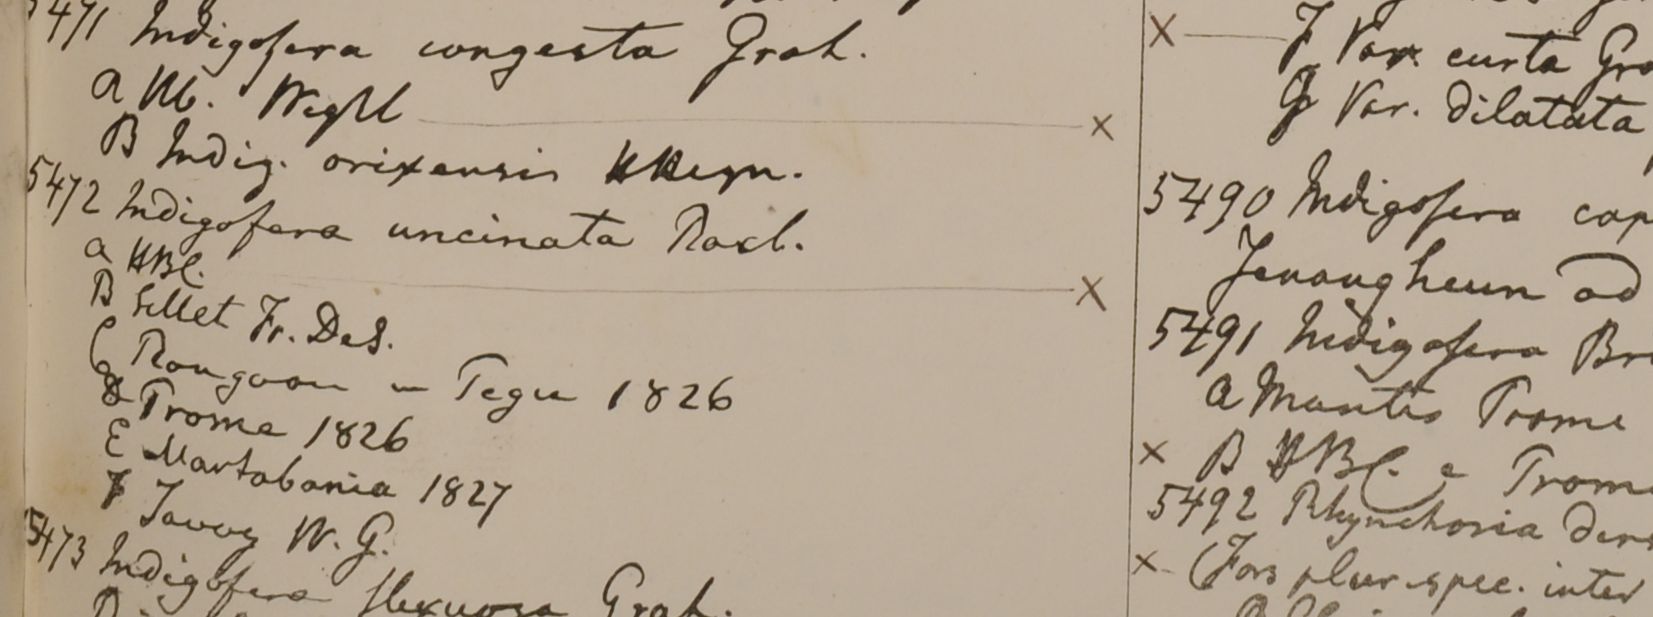 5471 Indigofera congesta Grah.
a Hb. Wight x
B Indig. orixensis HHeyn.
5472 Indigofera uncinata Roxb.
a HBC. x
B Sillet Fr. DeS.
C Rangoon in Pegu 1826
D Prome 1826
E Martabania 1827
F Tavoy W. G.
5473 Indigofera flexuosa Grah.
x F Var. curta Gra
G Var. dilatata
5490 Indigofera cap
Jenangheun ad
5491 Indigofera Br
a Montis Prome
x B HBC. e Prom
5492 Rhynchosia dens
x (Fors plur. spec. inter